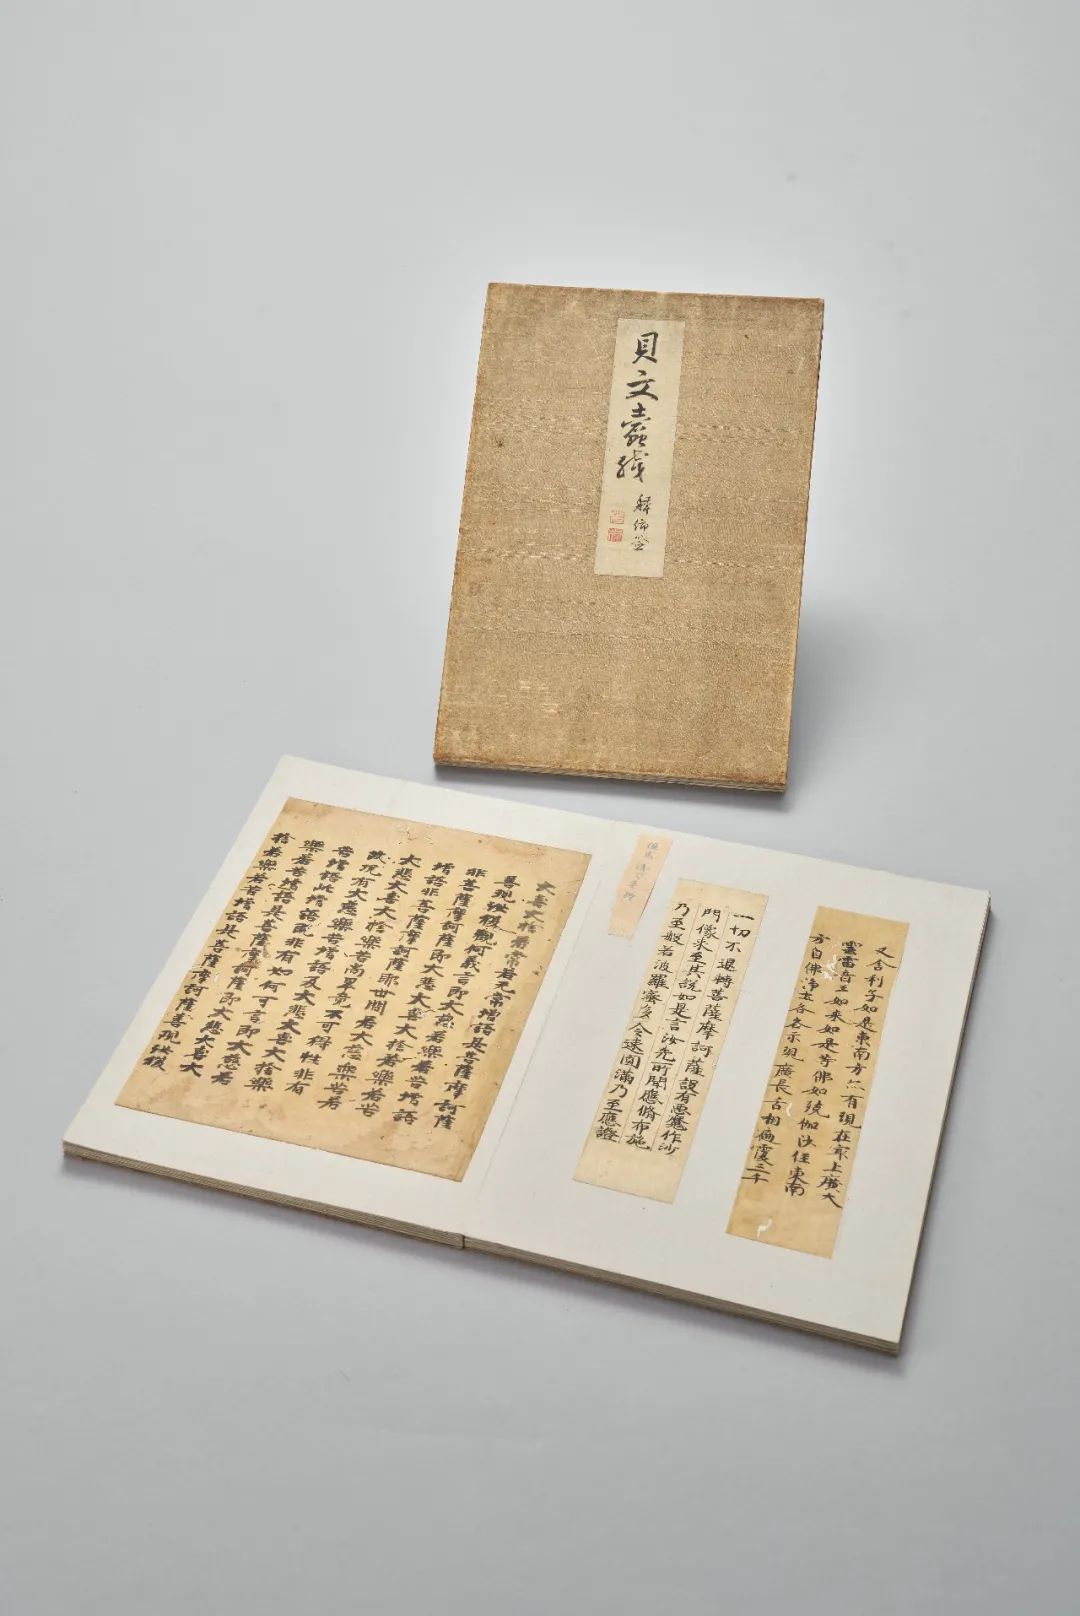 貝文蠹残
又舍利子如是東南方亦有現在最上廣大
雲雷音王如来如是等佛如殑伽沙住東南
方自佛净土各各示現廣長舌相遍覆三千
一切不退轉菩薩摩訶薩設有惡魔作沙
門像来至其說如是言汝先所聞應脩布施
乃至般若波羅蜜多令速圓滿乃至應證
大喜大捨若常若无常增語是菩薩摩訶薩
善現汝復觀何義言即大慈若樂若苦增語
非菩薩摩訶薩即大悲大喜大捨若樂若苦
增語非菩薩摩訶薩耶世尊若大慈樂苦若
大悲大喜大捨樂苦尚畢竟不可得性非有
故況有大慈樂苦增語及大悲大喜大捨樂
苦增語此增語既非有如何可言即大慈若
樂若苦增語是菩薩摩訶薩即大悲大喜大
捨若樂若苦增語是菩薩摩訶薩善現汝復